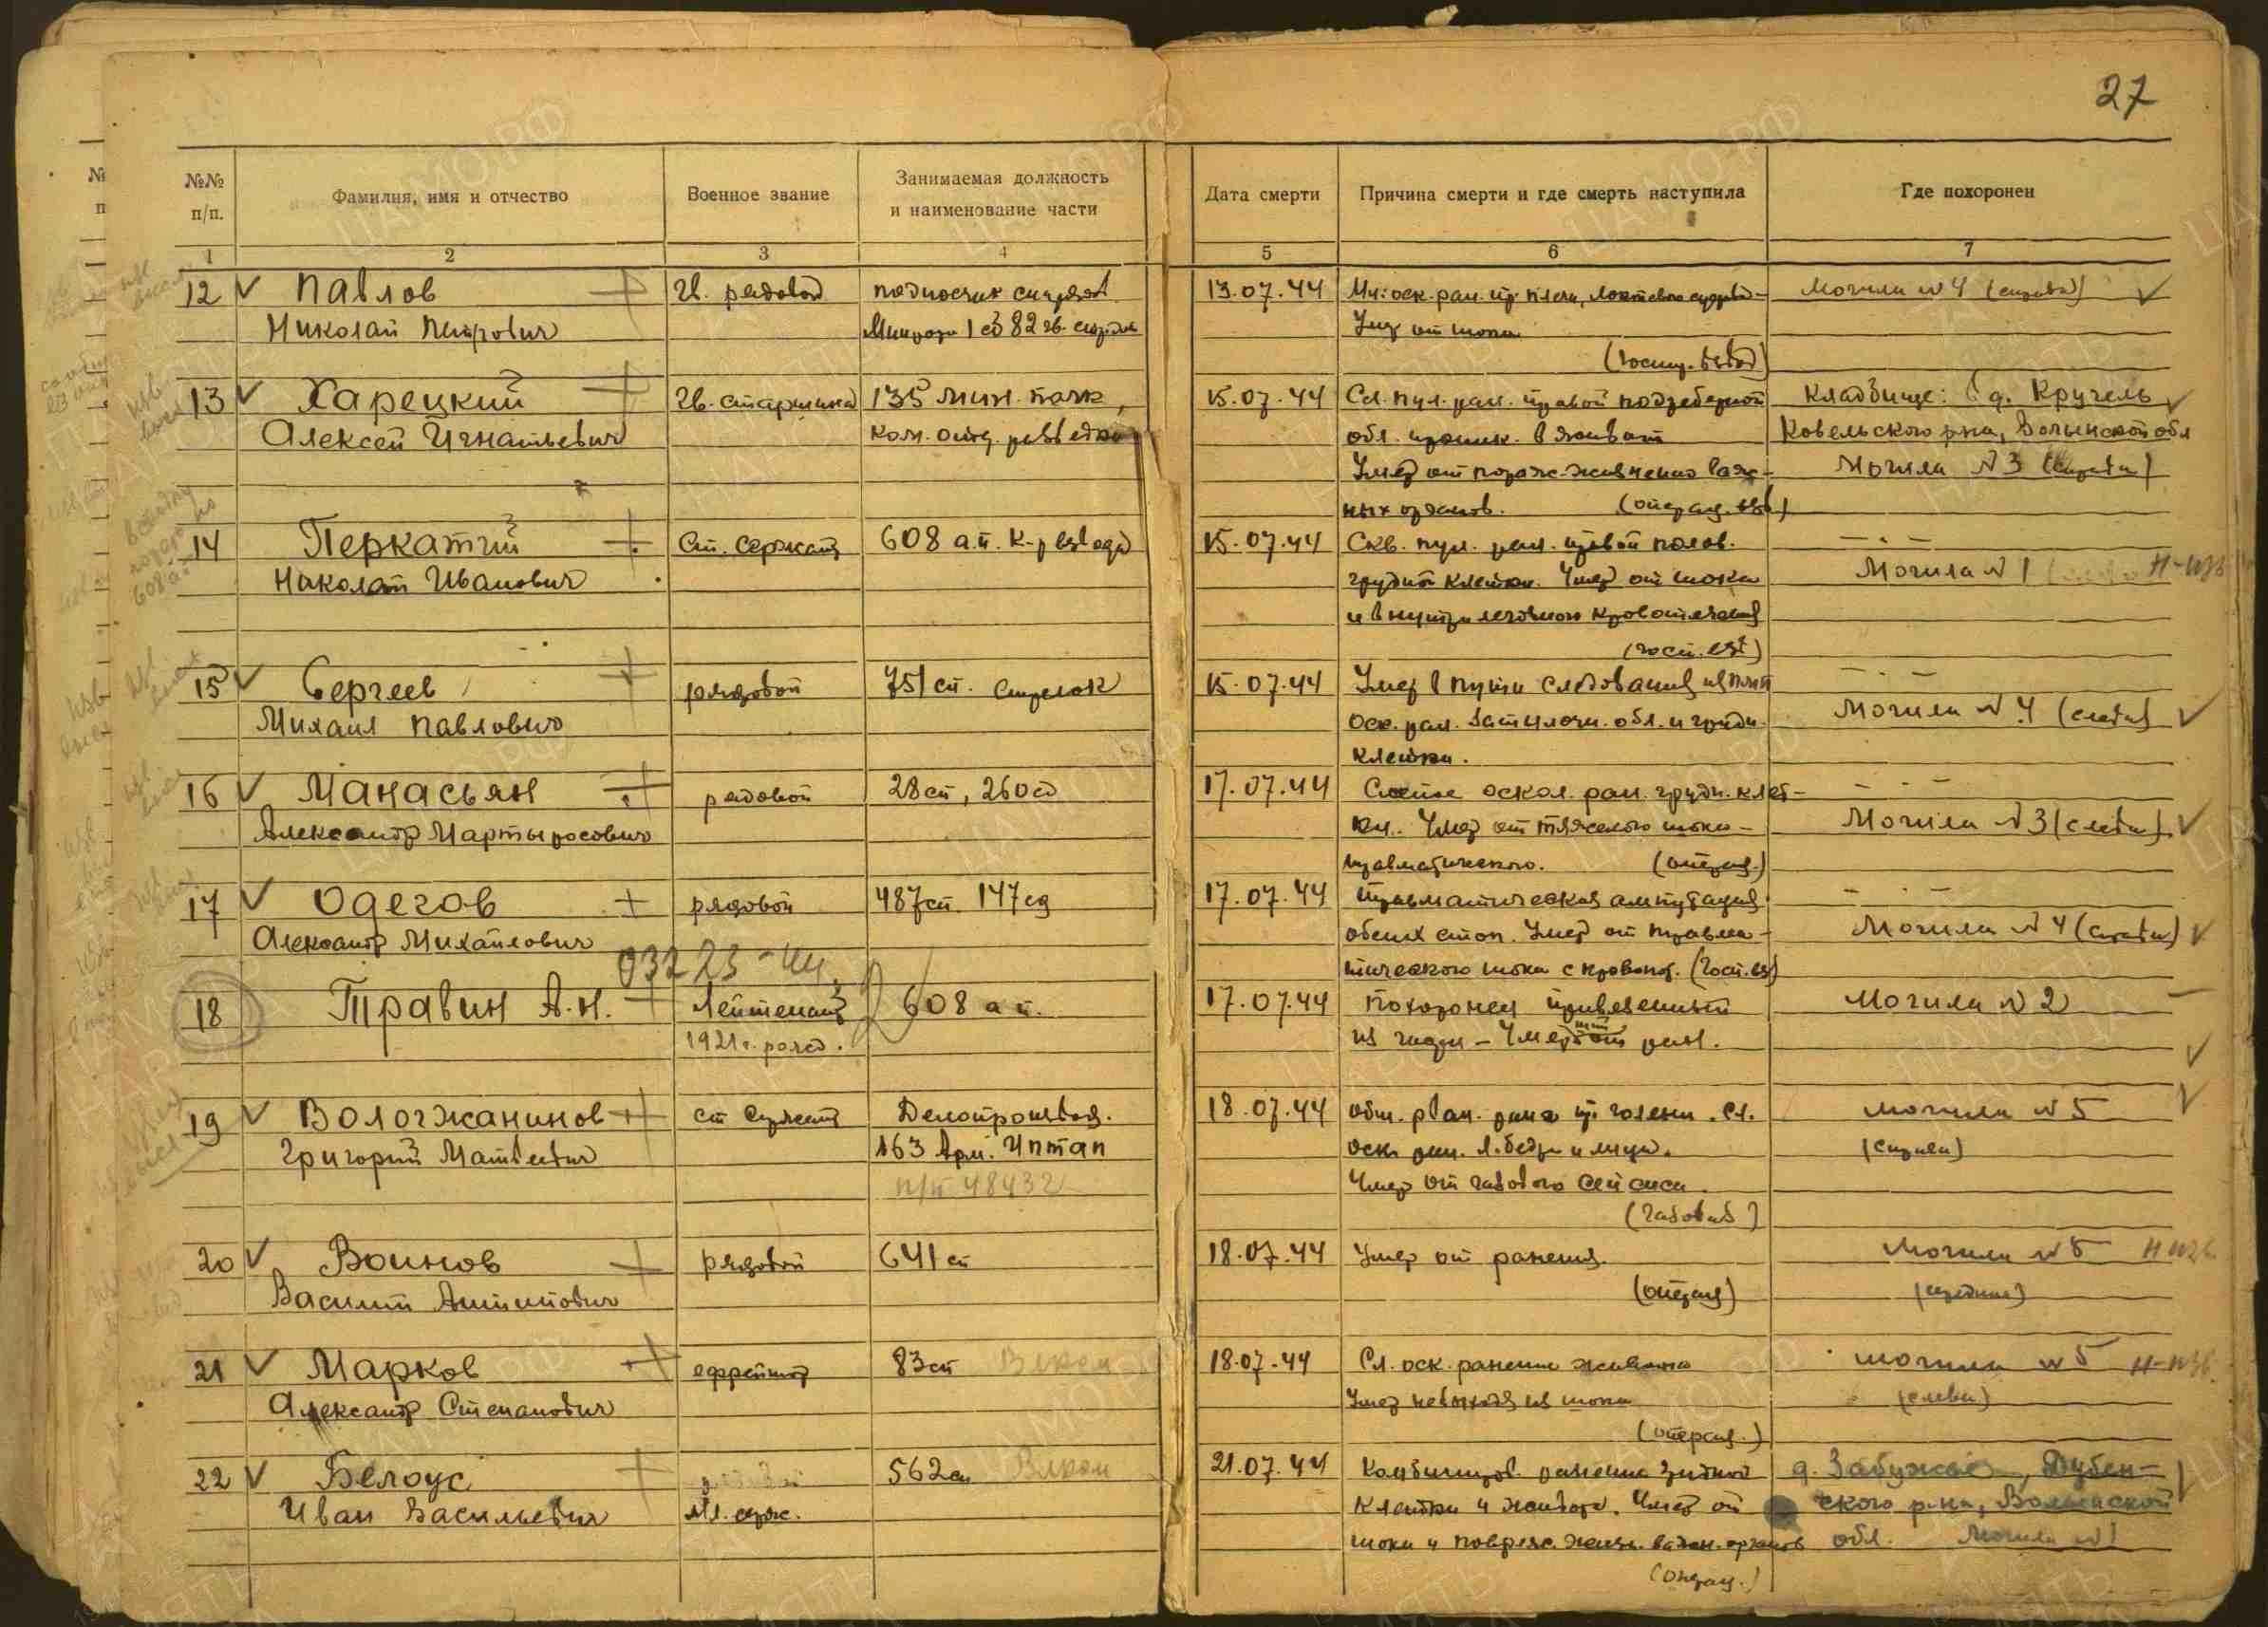 27
№№ п/п. Фамилия, имя и отчество Военное звание Занимаемая должность и наименование части Дата смерти Причина смерти и где смерть наступила Где похоронен
1 2 3 4 5 6 7
12 Павлов Гв. рядовой подносчик снаряд. 13.07.44 оск. ран. пр. плеча, Могила №4 (справа)
Николай Петрович 1 сб 82 гв.
Умер от шока
(госп. взвод)
13 Харецкий Гв. старшина 135 мин. полк, 15.07.44 Сл. пул. ран. правой подреберной Кладбище: д. Кручель
Алексей Игнатьевич ком. отд. разведки обл. проник. в живот Ковельского р-на, Волынской обл
Умер от пораж. жизненно важ- Могила №3 (справа)
ных органов. (операц. взв)
14 Перкатий Ст. сержант 608 а.п. К-р взвода 15.07.44 Скв. пул. ран. правой полов. — " —
Николай Иванович грудной клетки. Умер от шока Могила №1 Н-изв
и внутриплеврального кровотечения
(госп. взв)
15 Сергеев рядовой 751 сп. стрелок 15.07.44 Умер в пути следования — " —
Михаил Павлович оск. ран. затылочн. обл. и грудн. Могила №4 (слева)
клетки.
16 Манасьян рядовой 28 сп, 260 сд 17.07.44 Слепое оскол. ран. грудн. клет- — " —
Александр Мартыросович ки. Умер от тяжелого шока Могила №3 (слева)
травматического. (операц.)
17 Одегов рядовой 487 сп. 147 сд 17.07.44 Травматическая ампутация — " —
Александр Михайлович обеих стоп. Умер от травма- Могила №4 (справа)
тического шока с кровопот. (госп. взв)
03223-44
18 Травин А.Н. Лейтенант 608 а п. 17.07.44 Похоронен привезенный Могила №2
1921 г. рожд. из части – Умер от ран.
19 Вологжанинов ст сержант Делопроизвод. 18.07.44 обш. рван. рана пр. голени. Сл. могила №5
Григорий Матвеевич 163 Арм. Иптап оск. ран. л. бедра и лица. (справа)
п/п 48432 Умер от газового сепсиса.
(газовая)
20 Воинов рядовой 641 сп 18.07.44 Умер от ранения. могила №5 Н изв.
Василий Антипович (операц) (середина)
21 Марков ефрейтор 83 сп 18.07.44 Сл. оск. ранение живота могила №5 Н-изв.
Александр Степанович Умер не выходя из шока (слева)
(операц.)
22 Белоус 562 сп 21.07.44 Комбиниров. ранение грудной д. Забужье, Дубен-
Иван Васильевич Мл. серж. клетки и живота. Умер от ского р-на, Волынской
шока и повреж. жизн. важн. органов обл. Могила №1
(операц.)